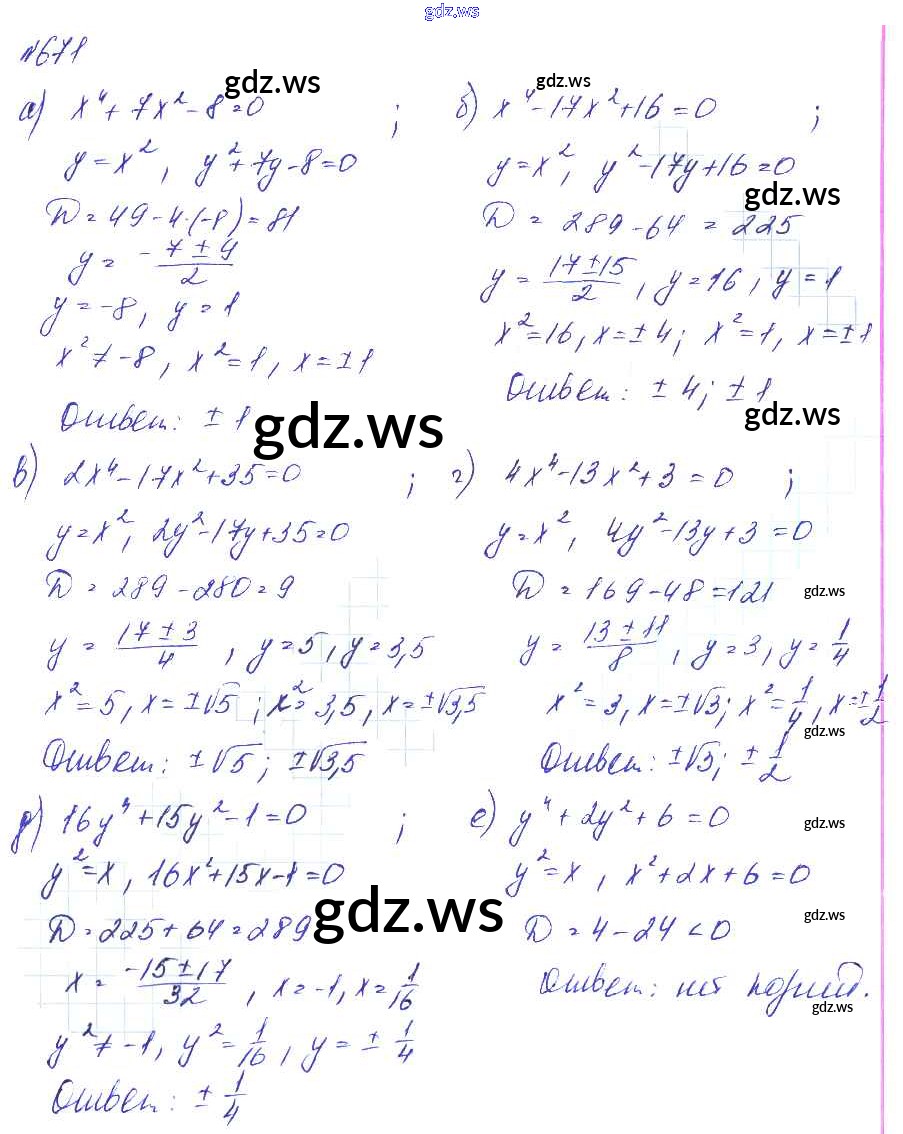 gdz.ws
№671
а) x⁴ + 7x² - 8 = 0 ;
gdz.ws
y = x², y² + 7y - 8 = 0
D = 49 - 4·(-8) = 81
y = -7 ± 9 / 2
y = -8, y = 1
x² ≠ -8, x² = 1, x = ±1
Ответ: ± 1
gdz.ws
б) x⁴ - 17x² + 16 = 0 ;
gdz.ws
y = x², y² - 17y + 16 = 0
gdz.ws
D = 289 - 64 = 225
y = 17 ± 15 / 2, y = 16, y = 1
x² = 16, x = ± 4; x² = 1, x = ±1
Ответ: ± 4; ± 1
gdz.ws
в) 2x⁴ - 17x² + 35 = 0 ;
y = x², 2y² - 17y + 35 = 0
D = 289 - 280 = 9
y = 17 ± 3 / 4, y = 5, y = 3,5
x² = 5, x = ±√5; x² = 3,5, x = ±√3,5
Ответ: ±√5; ±√3,5
г) 4x⁴ - 13x² + 3 = 0 ;
y = x², 4y² - 13y + 3 = 0
D = 169 - 48 = 121
gdz.ws
y = 13 ± 11 / 8, y = 3, y = 1/4
x² = 3, x = ±√3; x² = 1/4, x = ± 1/2
gdz.ws
Ответ: ±√3; ± 1/2
д) 16y⁴ + 15y² - 1 = 0 ;
y² = x, 16x² + 15x - 1 = 0
D = 225 + 64 = 289
gdz.ws
x = -15 ± 17 / 32, x = -1, x = 1/16
y² ≠ -1, y² = 1/16, y = ± 1/4
Ответ: ± 1/4
е) y⁴ + 2y² + 6 = 0
gdz.ws
y² = x, x² + 2x + 6 = 0
D = 4 - 24 < 0
gdz.ws
Ответ: нет корней.
gdz.ws